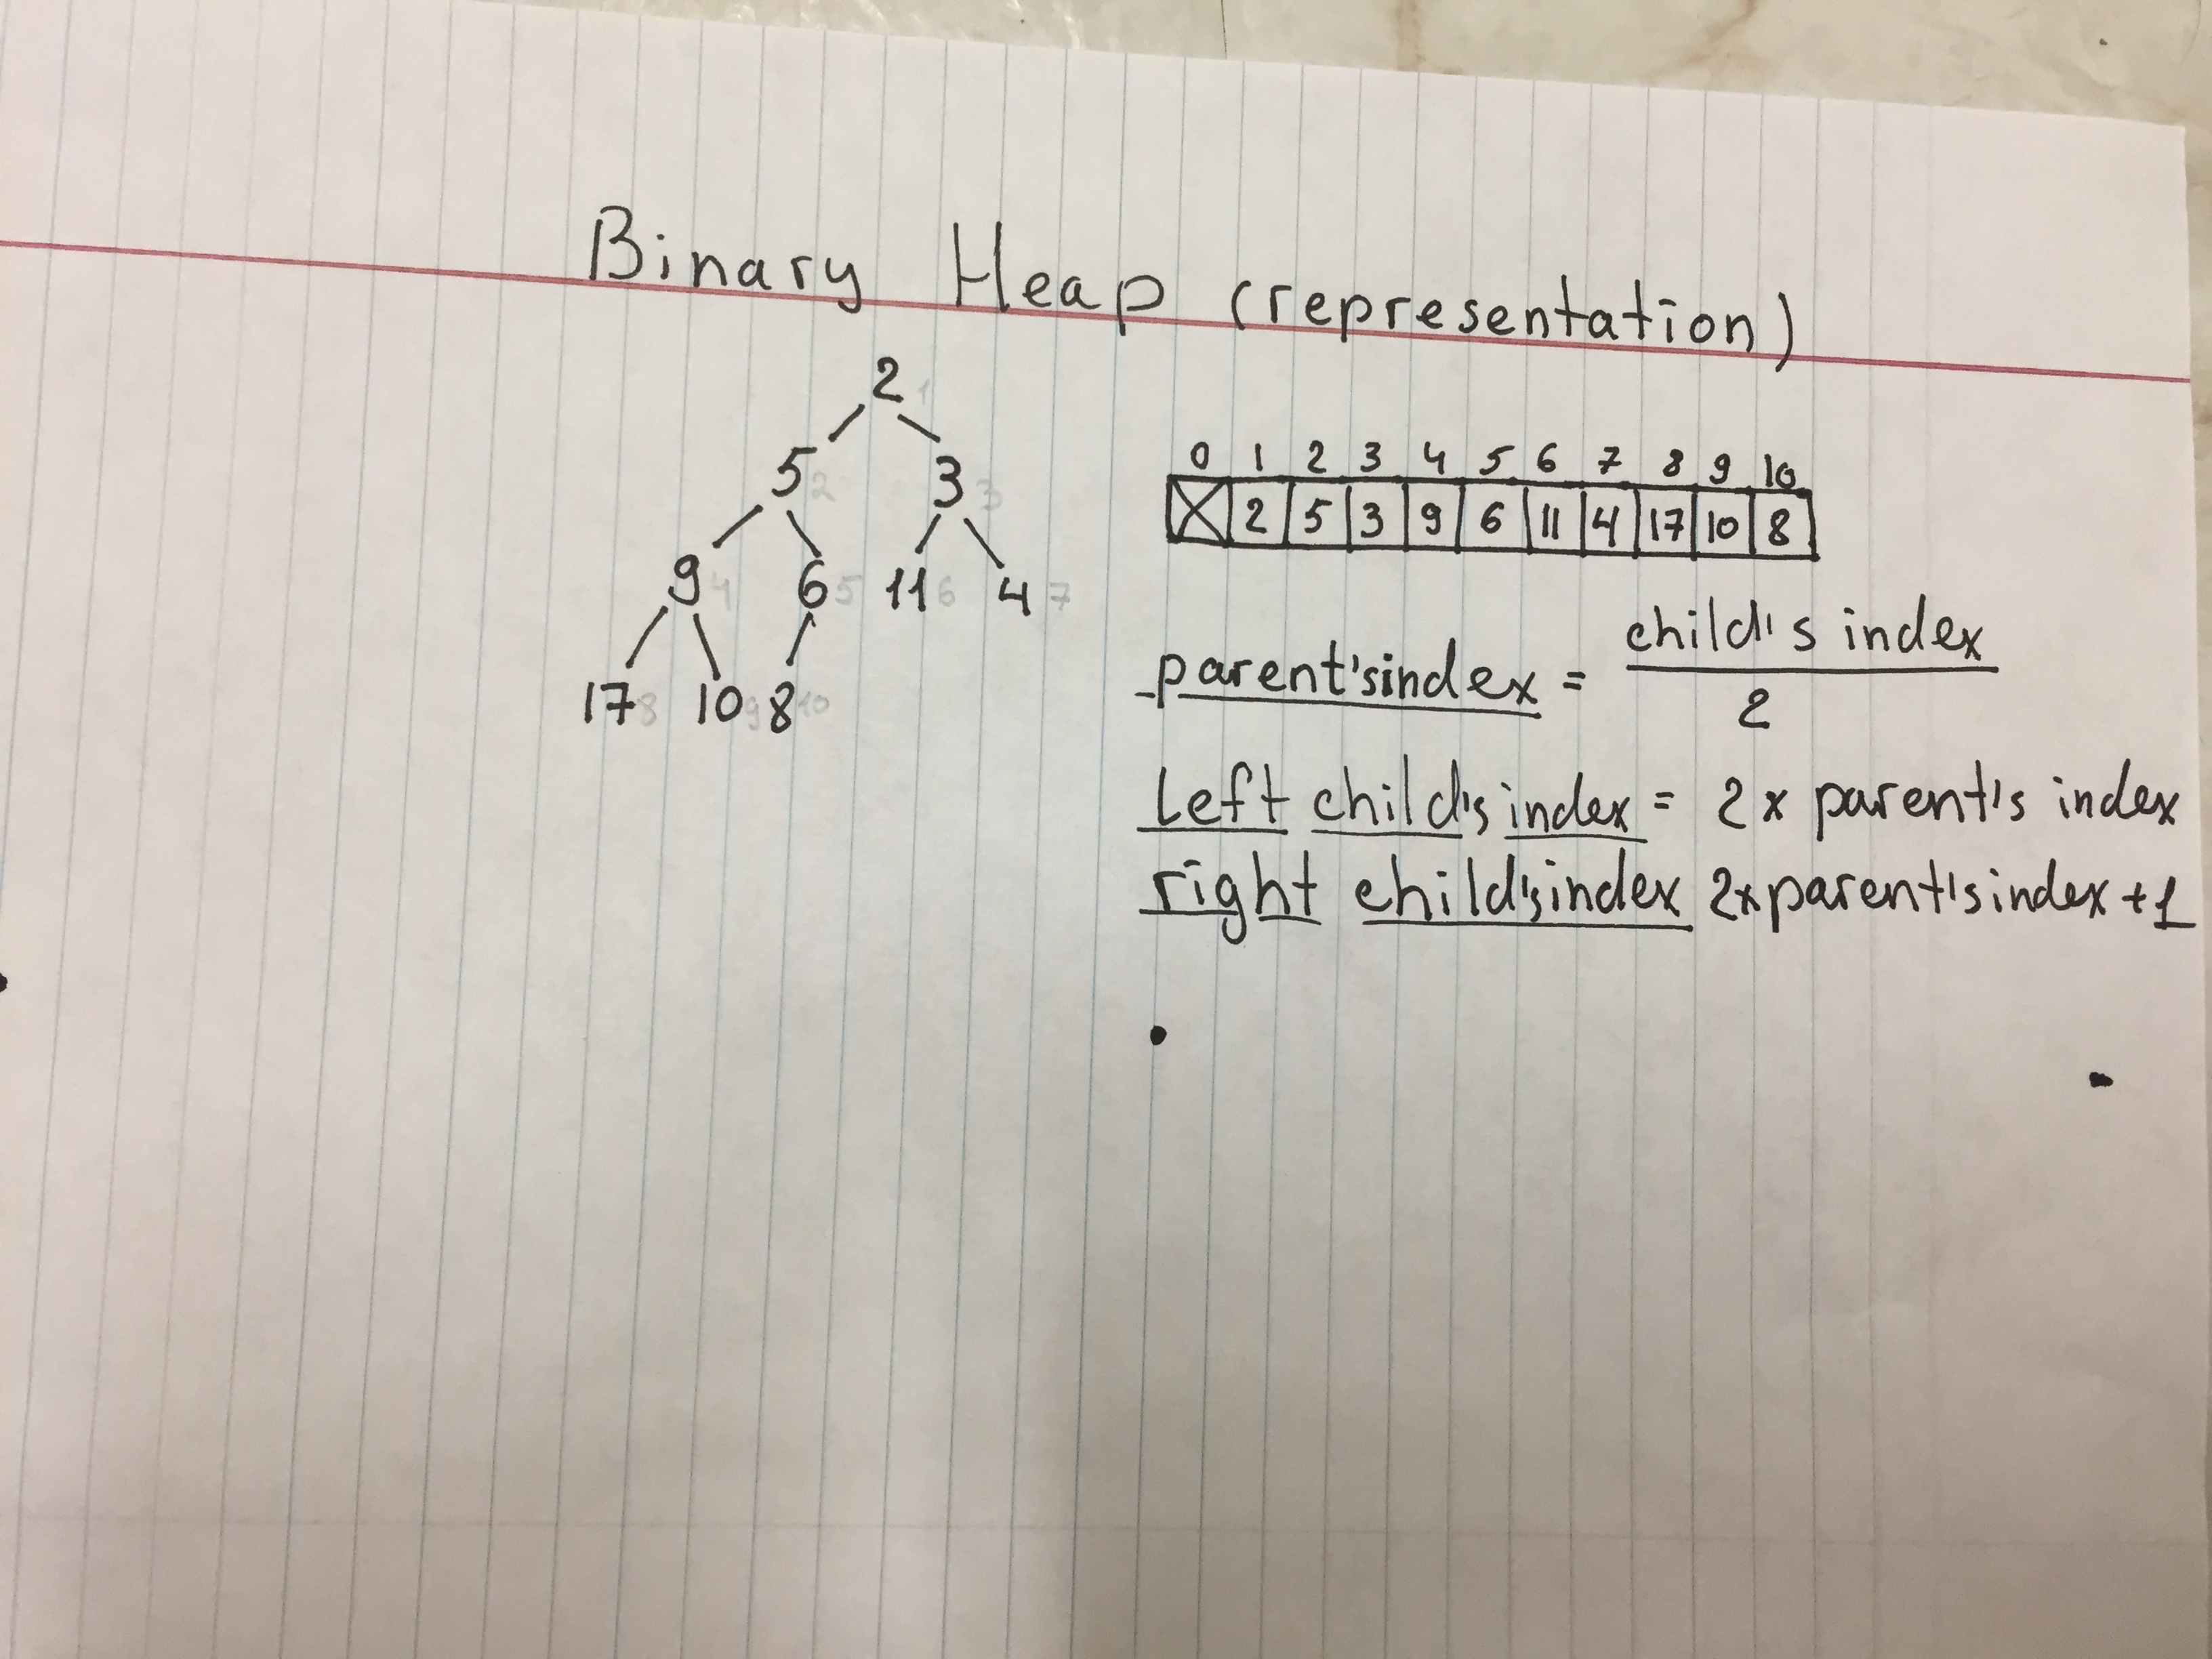 Binary Heap (representation)
2 1
5 2 3 3
9 4 6 5 11 6 4 7
17 8 10 9 8 10
0 1 2 3 4 5 6 7 8 9 10
2 5 3 9 6 11 4 17 10 8
-parent'sindex = child's index
2
Left child's index = 2 x parent's index
right child'sindex 2xparent'sindex +1